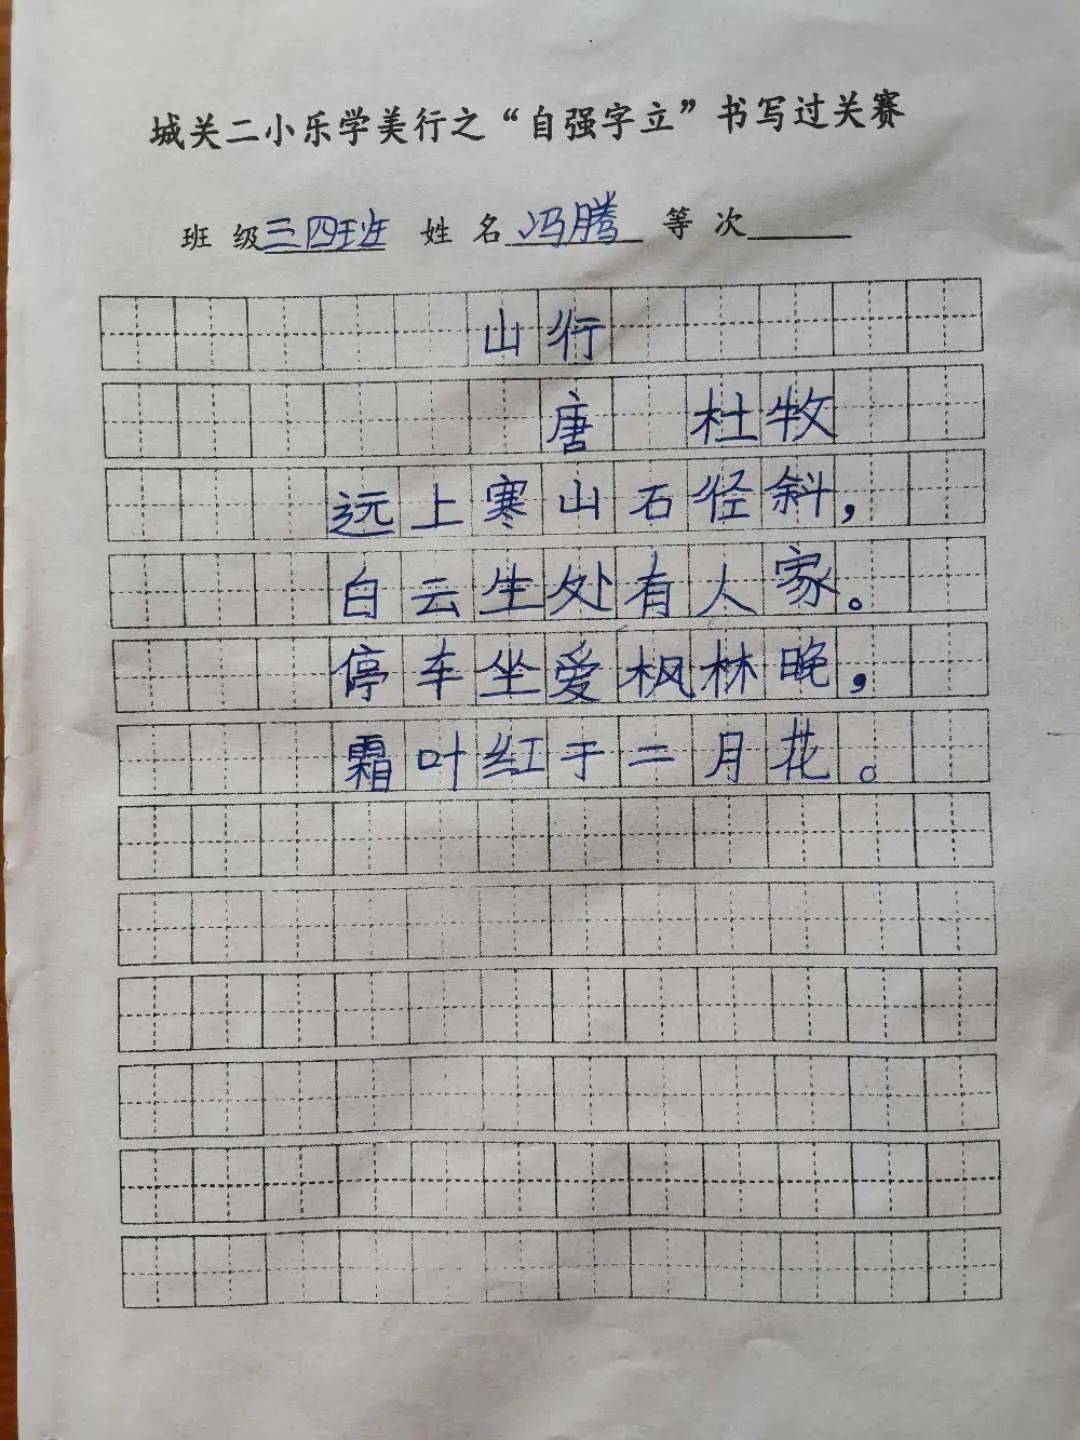 城关二小乐学美行之“自强字立”书写过关赛
班 级 三四班 姓 名 冯腾 等 次
山行
唐 杜牧
远上寒山石径斜，
白云生处有人家。
停车坐爱枫林晚，
霜叶红于二月花。